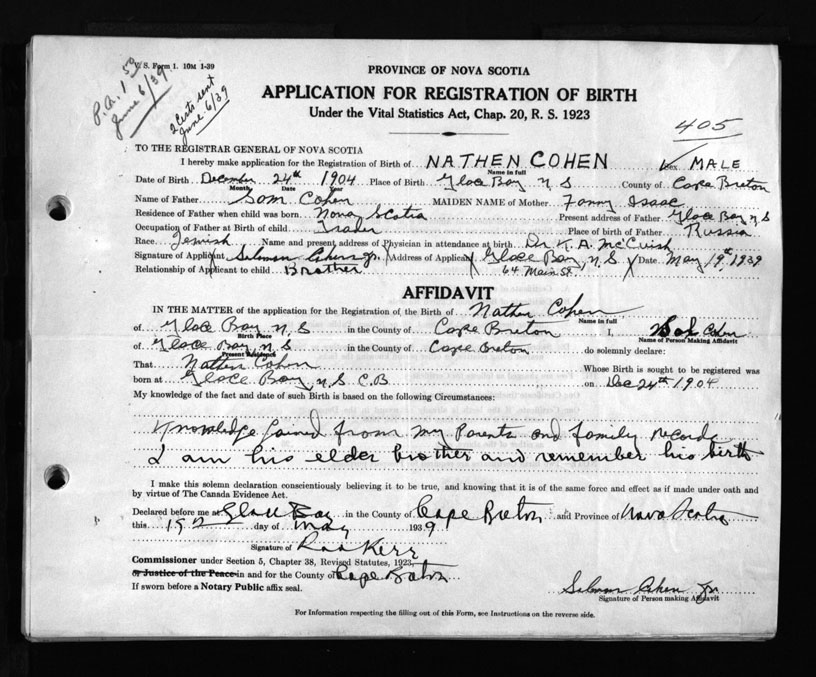 V. S. Form 1. 10M 1-39
P.A. 1 50
June 6/39
2 Certs sent
June 6/39
PROVINCE OF NOVA SCOTIA
APPLICATION FOR REGISTRATION OF BIRTH
Under the Vital Statistics Act, Chap. 20, R. S. 1923
405
TO THE REGISTRAR GENERAL OF NOVA SCOTIA
I hereby make application for the Registration of Birth of NATHEN COHEN Sex MALE
Name in full
Date of Birth December 24th 1904 Place of Birth Glace Bay N S County of Cape Breton
Month Date Year
Name of Father Sam Cohen MAIDEN NAME of Mother Fanny Isaac
Residence of Father when child was born Nova Scotia Present address of Father Glace Bay N S
Occupation of Father at Birth of child Trader Place of birth of Father Russia
Race Jewish Name and present address of Physician in attendance at birth Dr. K. A. McCuish
Signature of Applicant Solomon Cohen Jr. Address of Applicant Glace Bay, N.S. Date May 19th, 1939
Relationship of Applicant to child Brother 64 Main St.
AFFIDAVIT
IN THE MATTER of the application for Registration of the Birth of Nathen Cohen
Name in full
of Glace Bay N. S in the County of Cape Breton I, Cohen
Birth Place Name of Person Making Affidavit
of Glace Bay, N S in the County of Cape Breton do solemnly declare:
Present Residence
That Nathen Cohen Whose Birth is sought to be registered was
born at Glace Bay, N S C.B on Dec 24th 1904
My knowledge of the fact and date of such Birth is based on the following Circumstances:
Knowledge gained from my Parents and family records
I am his elder brother and remember his birth
I make this solemn declaration conscientiously believing it to be true, and knowing that it is of the same force and effect as if made under oath and
by virtue of The Canada Evidence Act.
Declared before me at Glace Bay in the County of Cape Breton and Province of Nova Scotia
this 19 day of May 1939
Signature of Kerr
Commissioner under Section 5, Chapter 38, Revised Statutes, 1923,
or Justice of the Peace in and for the County of Cape Breton
If sworn before a Notary Public affix seal.
Solomon Cohen Jr
Signature of Person making Affidavit
For Information respecting the filling out of this Form, see Instructions on the reverse side.